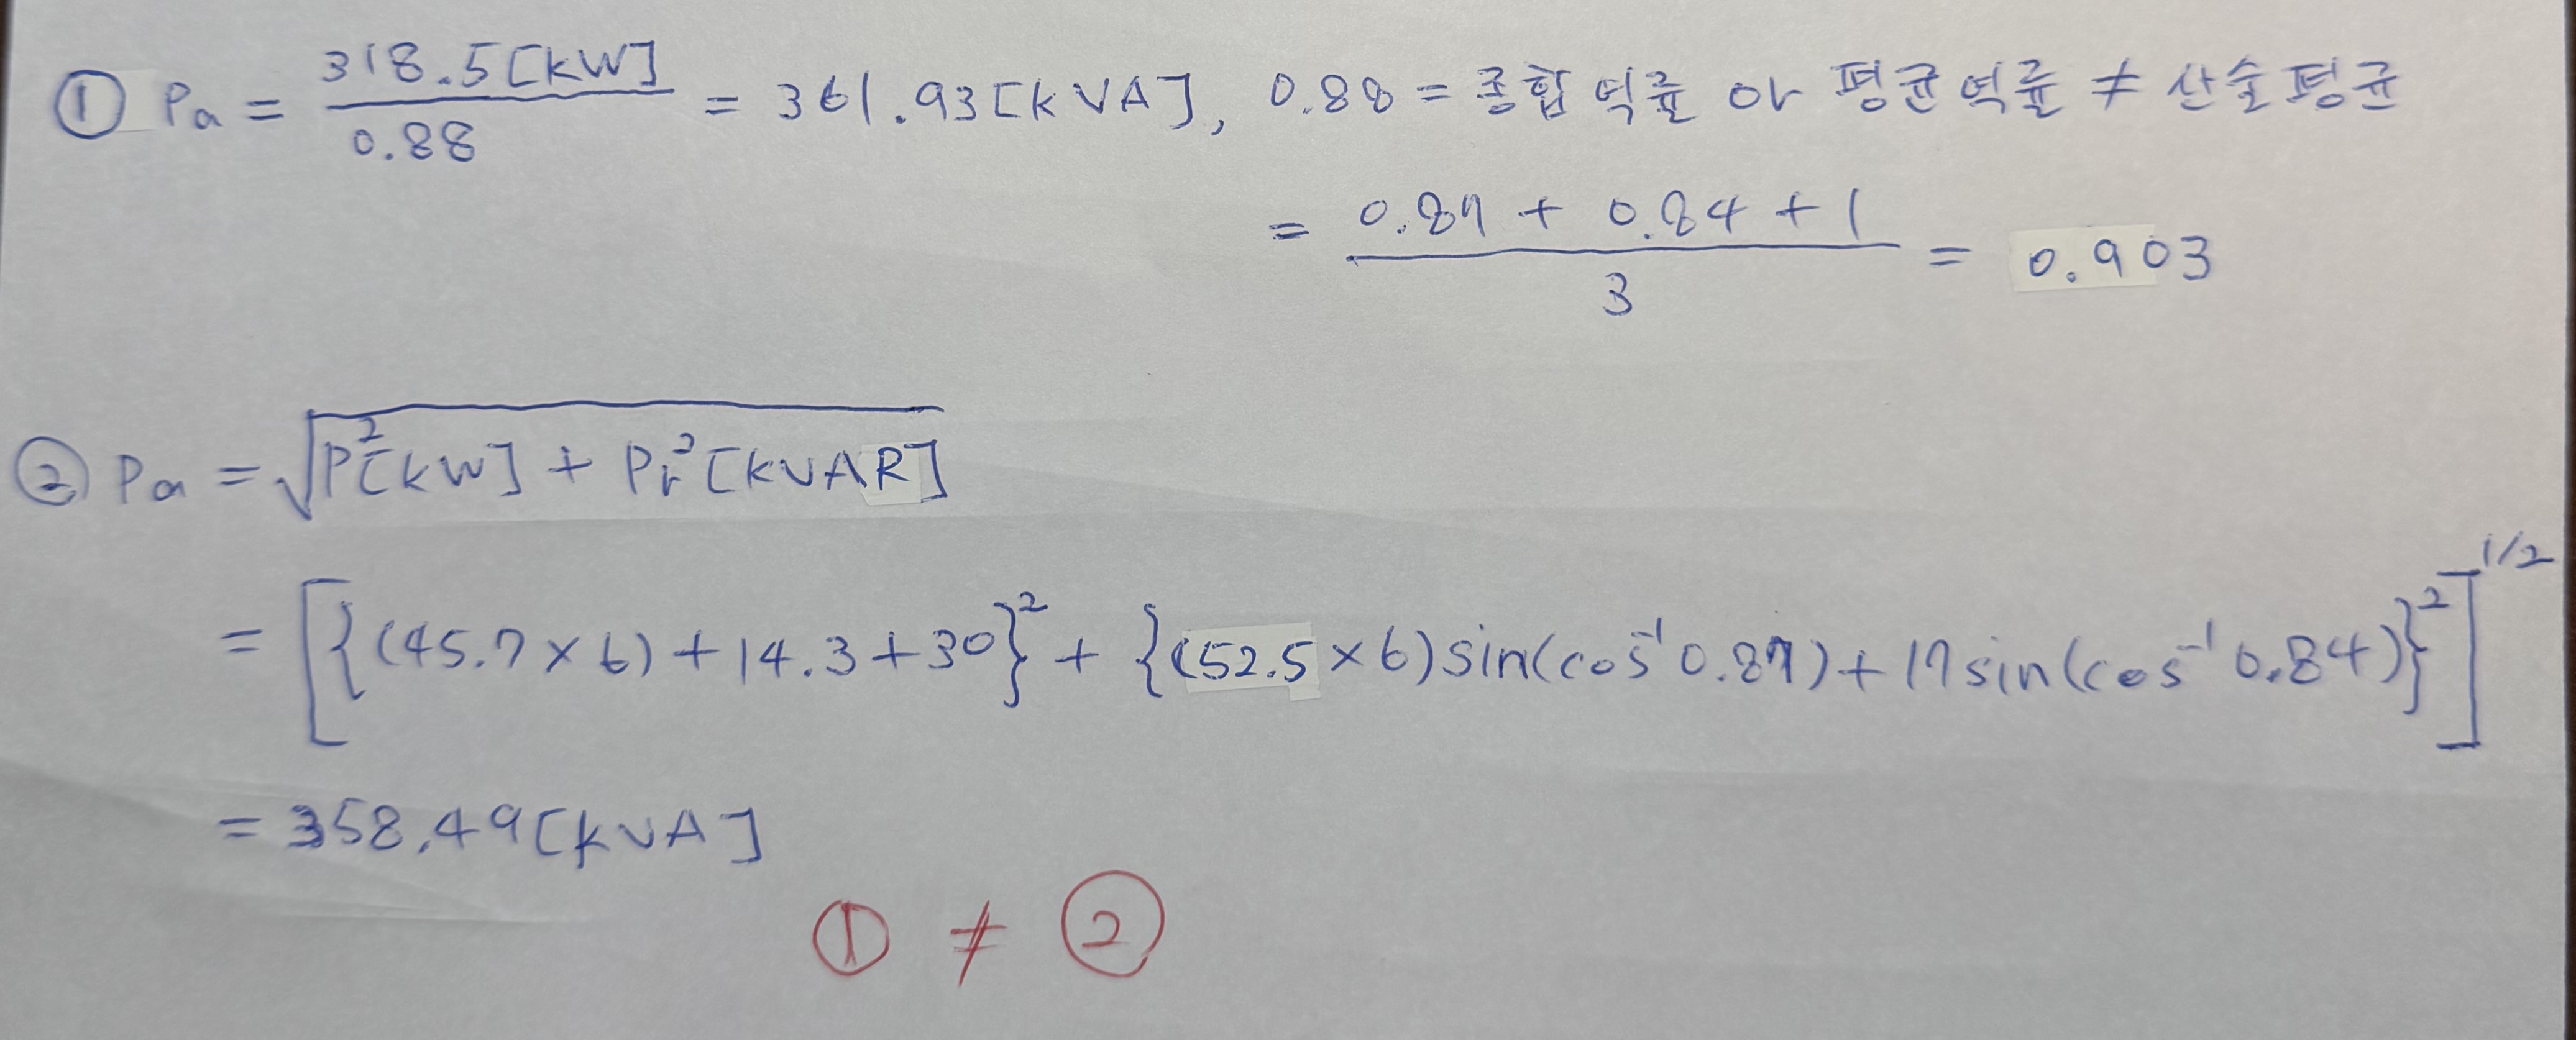 ① Pa = 318.5[kW] / 0.88 = 361.93[kVA], 0.88 = 종합역률 or 평균역률 ≠ 산술평균
= (0.87 + 0.84 + 1) / 3 = 0.903
② Pa = √(P²[kW] + Pr²[kVAR])
= [{(45.7×6)+14.3+30}² + {(52.5×6)sin(cos⁻¹0.87)+17sin(cos⁻¹0.84)}²]^1/2
= 358.49[kVA]
① ≠ ②